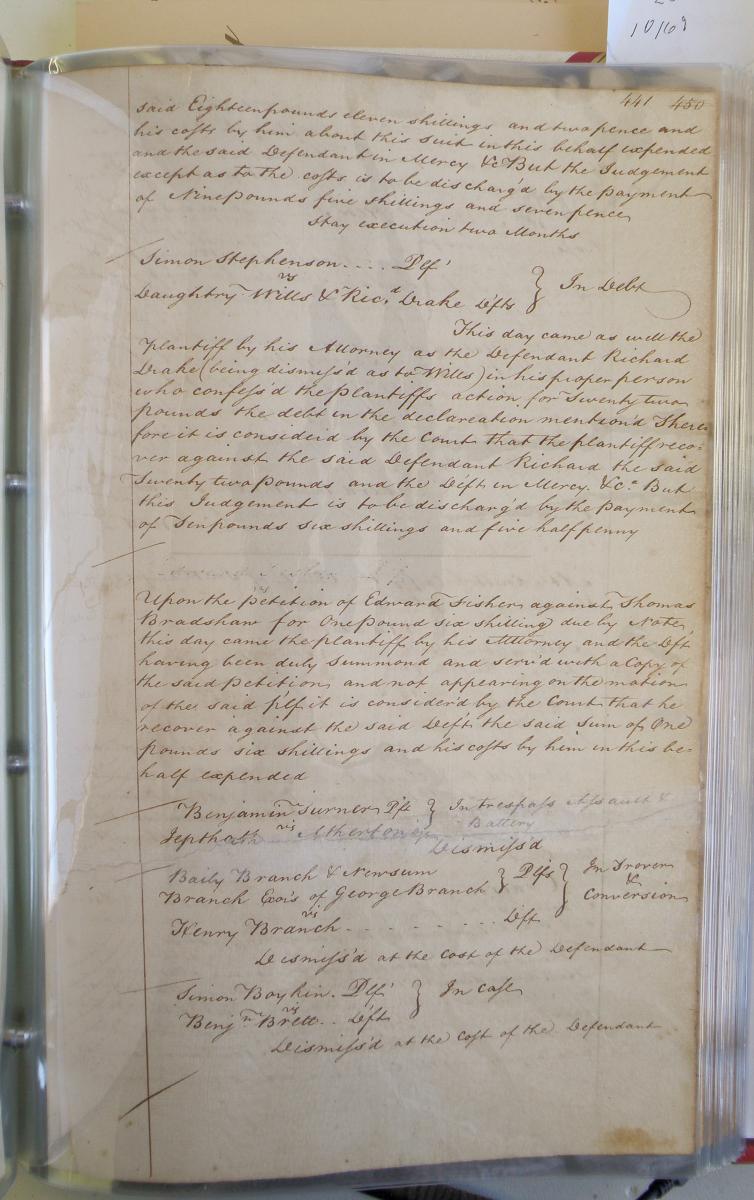 10/69
441 450
said Eighteen pounds eleven shillings and two pence and
his costs by him about this suit in this behalf expended
and the said Defendant in Mercy &c But the Judgement
except as to the costs is to be discharg'd by the payment
of Nine Pounds five shillings and seven pence
Stay execution two Months
Simon Stephenson .... Plf
vs
Daughtry Wills & Ricd Drake Defts } In Debt
This day came as well the
Plantiff by his Attorney as the Defendant Richard
Drake (being dismiss'd as to Wills) in his proper person
who confess'd the plantiffs action for Twenty two
pounds the debt in the declareation mention'd There
fore it is consider'd by the Court that the plantiff reco=
ver against the said Defendant Richard the said
Twenty two Pounds and the Deft in Mercy &ca But
this Judgement is to be discharg'd by the payment
of Ten pounds six shillings and five half penny
Upon the petition of Edward Fisher against Thomas
Bradshaw for One Pound six shilling due by Note
this day came the plantiff by his Attorney and the Dft
having been duly Summond and serv'd with a Copy of
the said petition and not appearing on the motion
of the said plf it is consider'd by the Court that he
recover against the said Deft the said Sum of One
pounds six shillings and his costs by him in this be=
half expended
Benjamin Turner Plt } In trespass Assault &
Jepthath vs Atherton Battery
Dismiss'd
Baily Branch & Newsum
Branch Exors of George Branch } Plfs } In Trover & Conversion
vs
Henry Branch . . . . . . . . Dft
Dismiss'd at the Cost of the Defendant
Simon Boykin. Plf } In case
vs
Benjn Brett .. Dft
Dismiss'd at the Cost of the Defendant